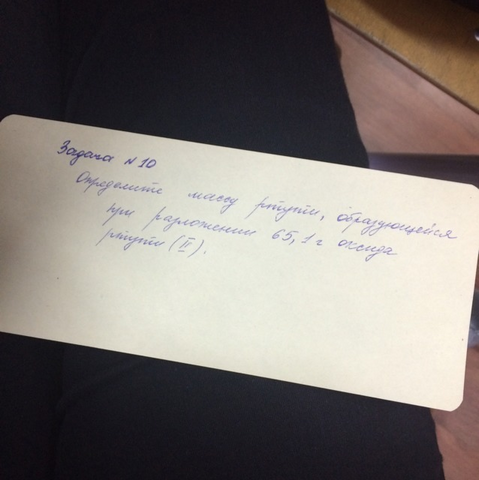 Задача №10
Определите массу ртути, образующейся
при разложении 65,1 г оксида
ртути (II).